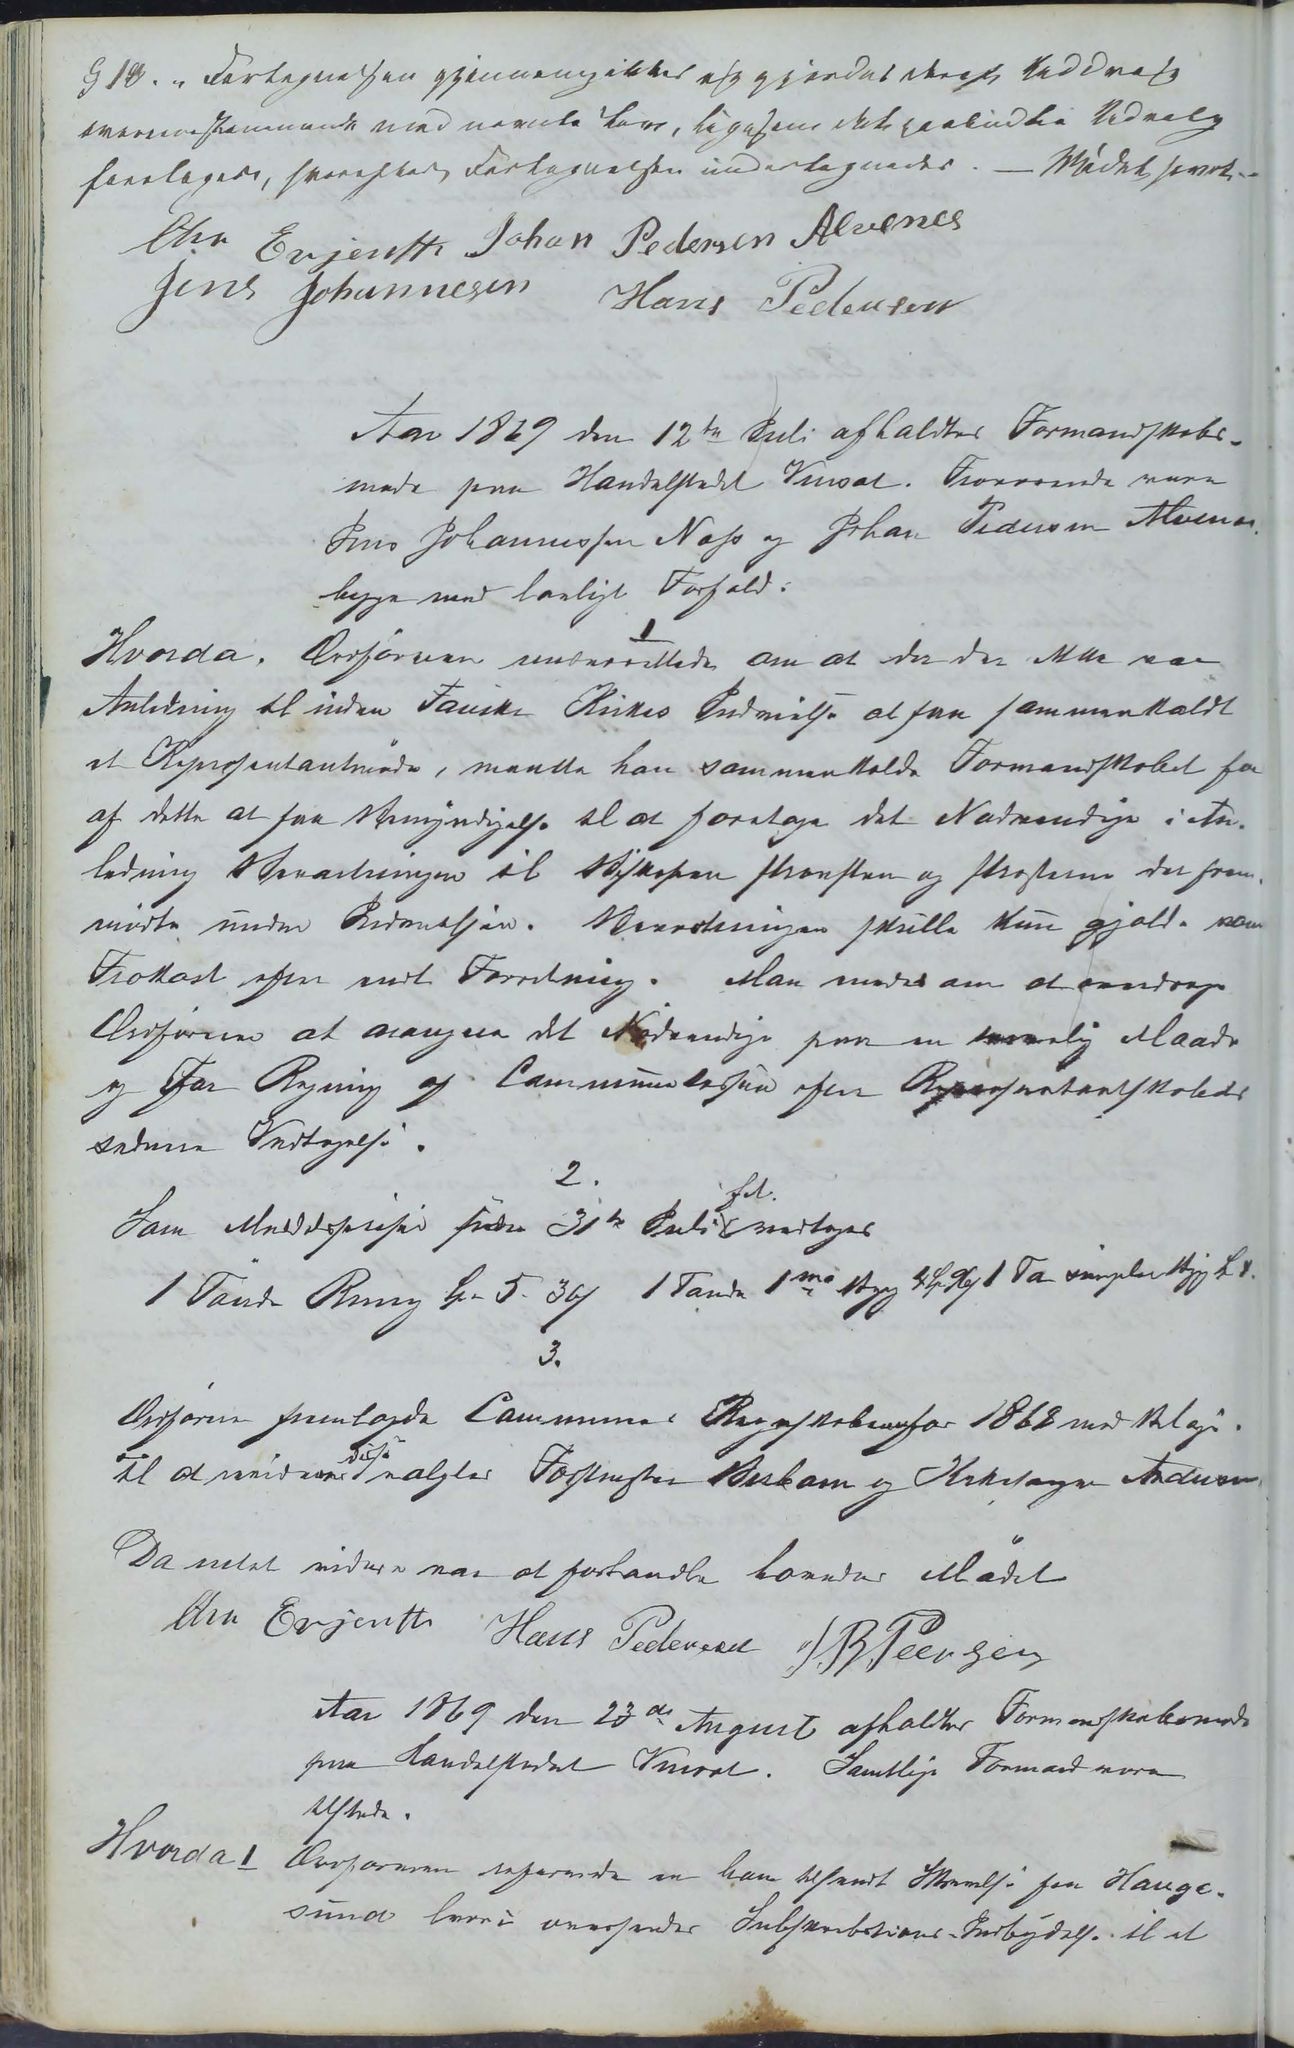 § 18. „ Fortegnelsen gjennemgikkes og gjordes derefter Uddrag
overensstemmende med nævnte Lov, ligesom det Udvalg
foretages, hvorefter Fortegnelsen undertegnedes. — Mødet hævet. —
Chr Evjenth Johan Pedersen Alvenes
Jens Johannesen Hans Pedersen
Aar 1869 den 12te Juli afholdtes Formandskabs-
møde paa Handelstedet Venset. Fraværende vare
Jens Johannessen Næss og Johan Pedersen Alvenes
begge med lovligt Forfald:
1
Hvorda. Ordføreren underrettede om at da der ikke var
Anledning til inden Fauske Kirkes Indvielse at faa sammenkaldt
et Representantmøde, maatte han sammenkalde Formandskabet for
af dette at faa Bemyndigelse til at foretage det Nødvendige i An-
ledning Beværtningen til Biskopen Provsten og Presterne der frem-
mødte under Indvielsen. Beværtningen skulle kun gjælde som
Frokost efter endt Forretning. Man enedes om at overdrage
Ordføreren at arrangere det Nødvendige paa en Maade
og for Regning af Communekassen efter Representantskabets
senere Vedtagelse.
2.
Som Meddelspriser siden 31te Juli f.A. vedtages
1 Tønde Rug Sp. 5. 36 1 Tønde 1ma Byg 1 Tø simplere Byg
3.
Ordføreren fremlagde Communens Regnskaber for 1868 med Bilage.
Til at revidere disse valgtes Postmester Buskam og Kirkesanger Andersen
Da intet videre var at forhandle hævedes Mødet
Chr Evjenth Hans Pedersen J. B. Peersen
Aar 1869 den 23de August afholdtes Formandskabsmøde
paa Handelstedet Venset. Samtlige Formænd vare
tilstede.
Hvorda 1 Ordføreren refererede en ham tilsendt Skrivelse fra Hauge-
sund hvori oversendes Subskribtions-Indbydelse til et